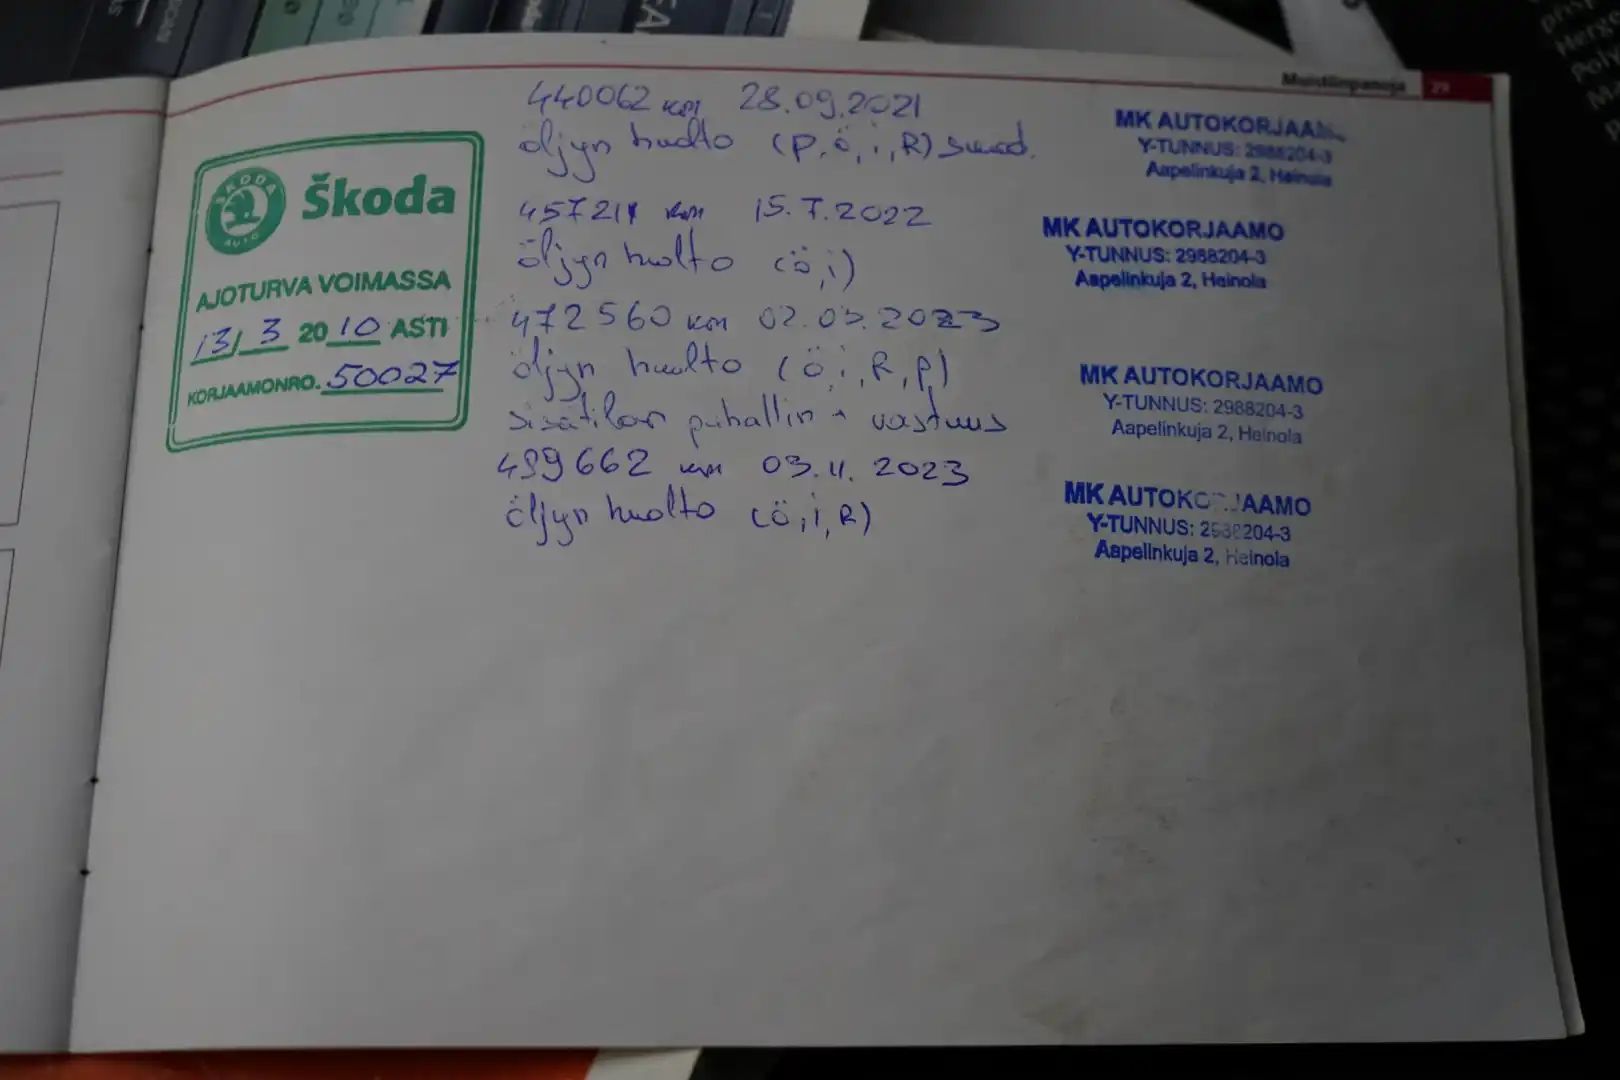 Muistiinpanoja 29
ŠKODA AUTO
Škoda
AJOTURVA VOIMASSA
13/3 2010 ASTI
KORJAAMONRO. 50027
440062 km 28.09.2021
öljyn huolto (p, ö, i, R)
MK AUTOKORJAAMO
Y-TUNNUS: 2988204-3
Aapelinkuja 2, Heinola
457211 km 15.7.2022
öljyn huolto (ö, i)
MK AUTOKORJAAMO
Y-TUNNUS: 2988204-3
Aapelinkuja 2, Heinola
472560 km 02.03.2023
öljyn huolto (ö, i, R, p)
sisätilan puhallin + vastuus
MK AUTOKORJAAMO
Y-TUNNUS: 2988204-3
Aapelinkuja 2, Heinola
499662 km 03.11.2023
öljyn huolto (ö, i, R)
MK AUTOKORJAAMO
Y-TUNNUS: 2988204-3
Aapelinkuja 2, Heinola